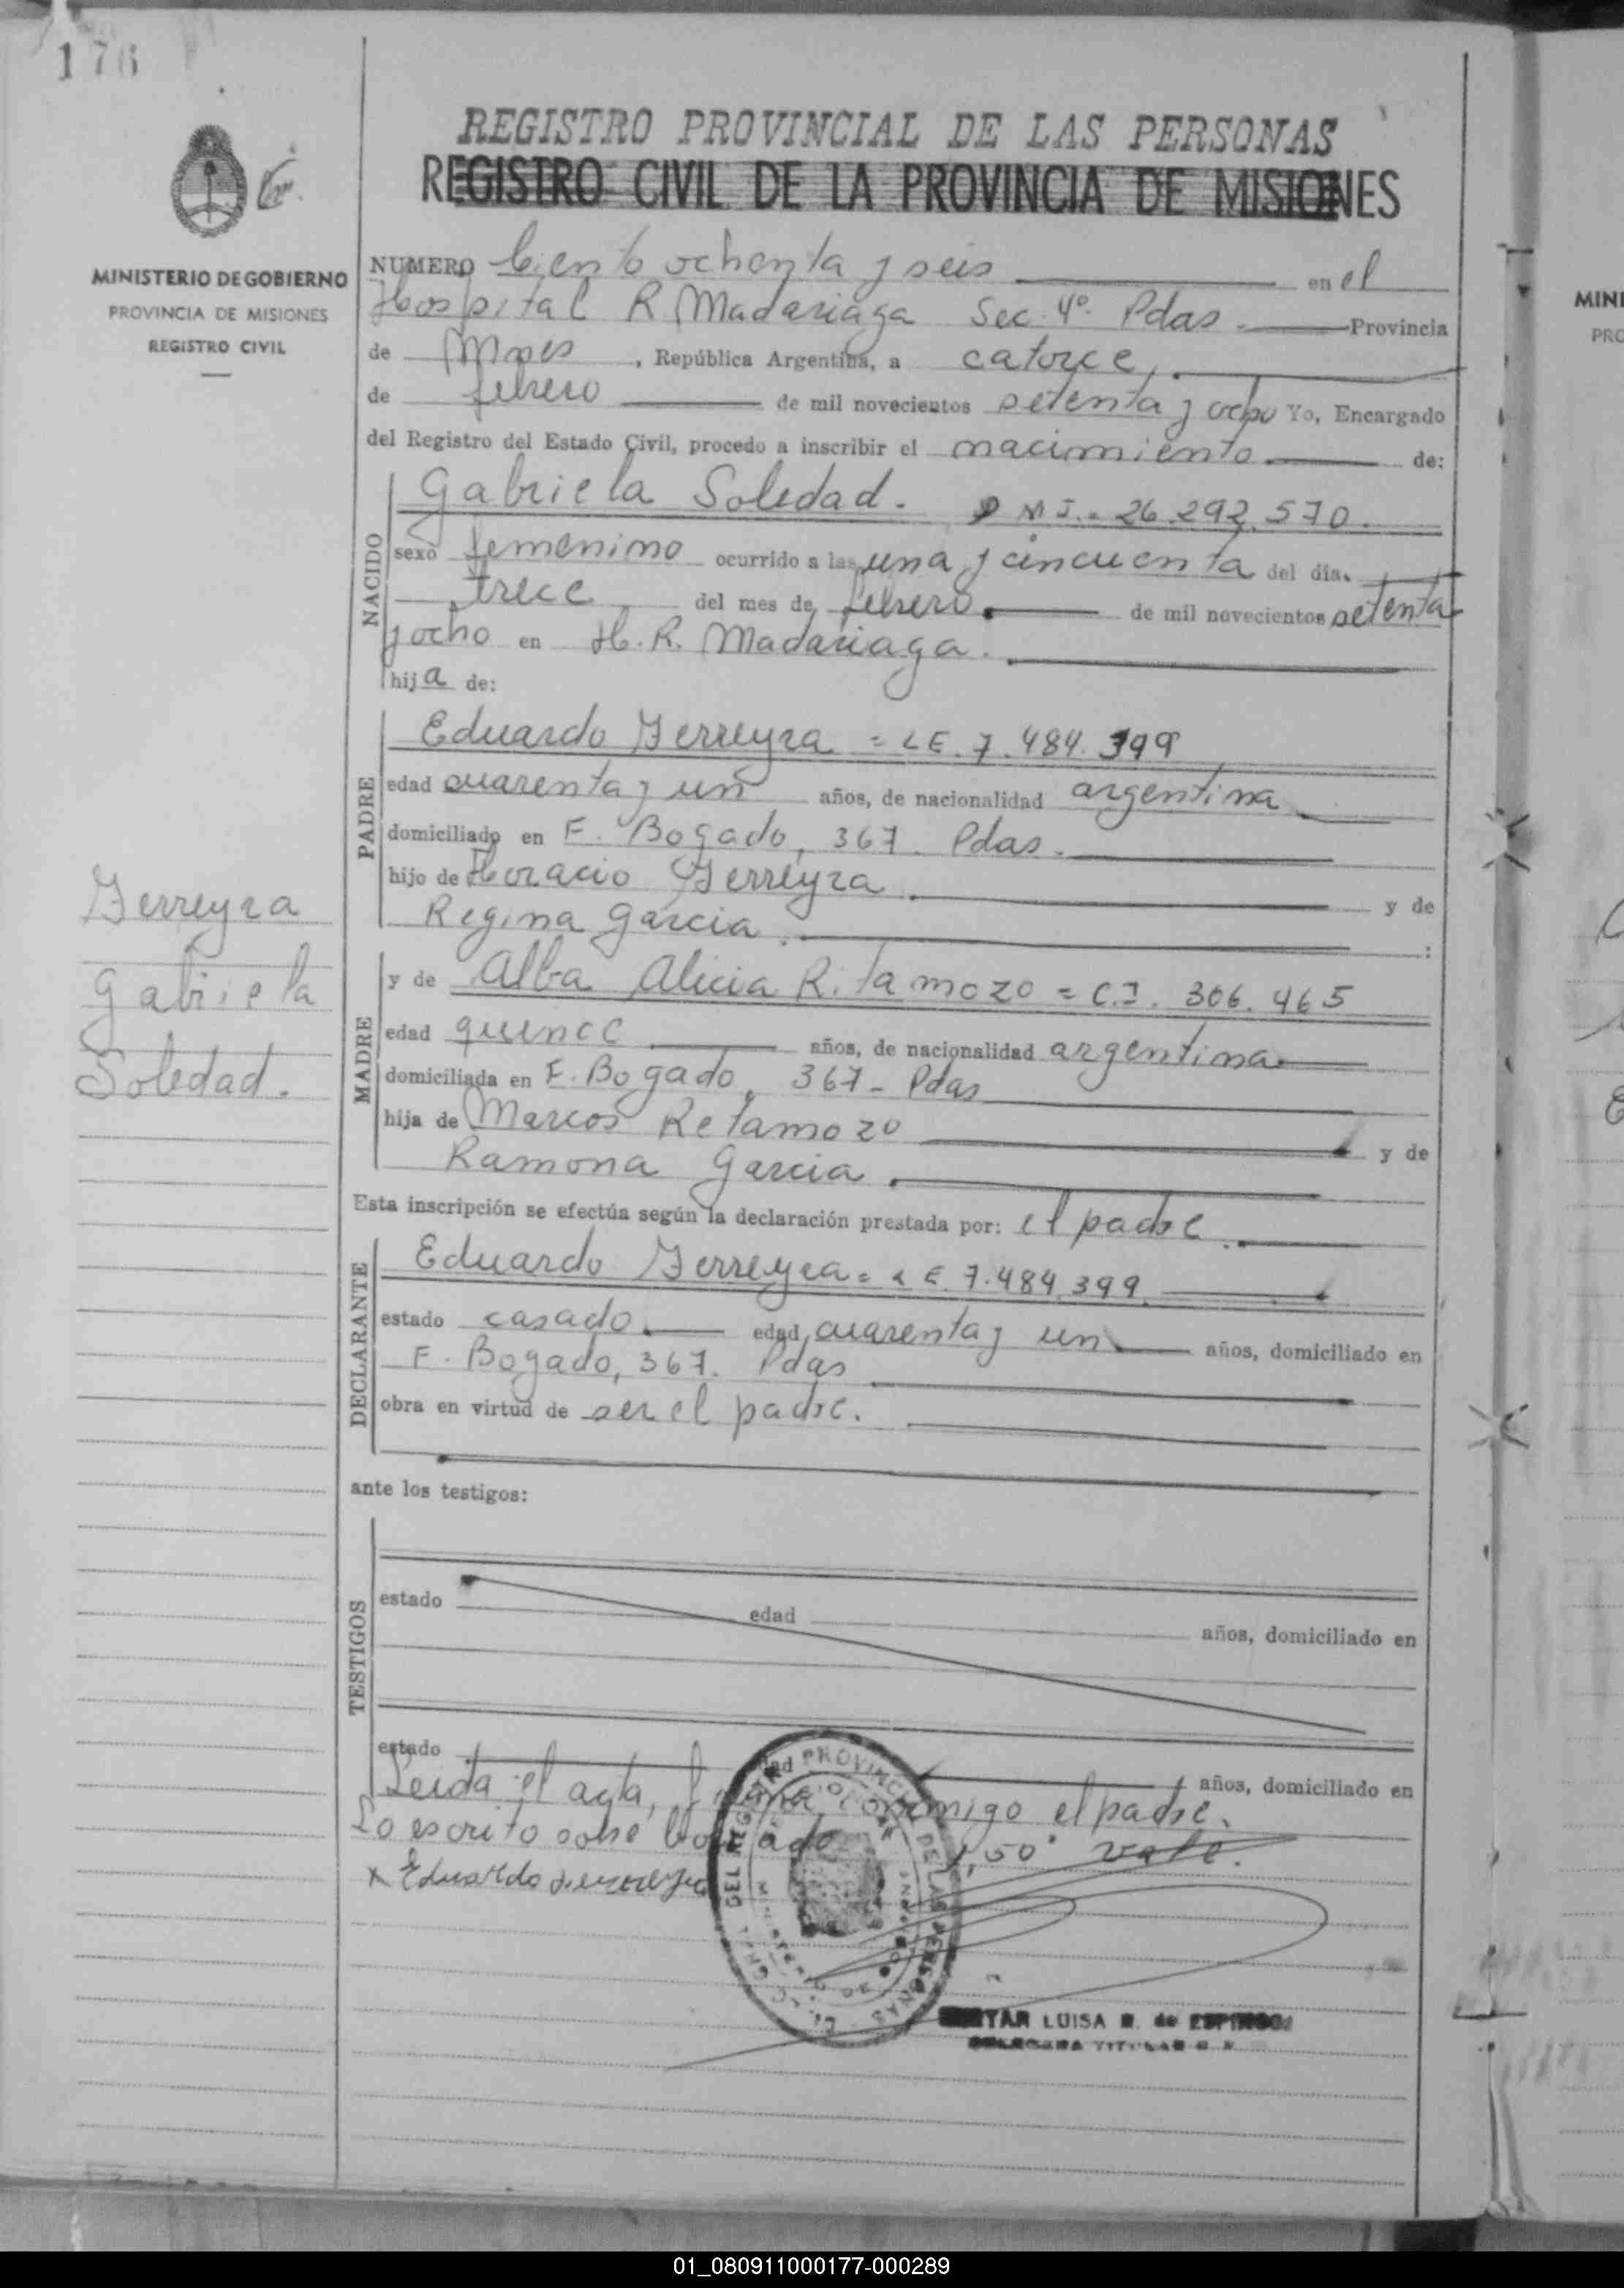 176
REGISTRO PROVINCIAL DE LAS PERSONAS
REGISTRO CIVIL DE LA PROVINCIA DE MISIONES
MINISTERIO DE GOBIERNO
PROVINCIA DE MISIONES
REGISTRO CIVIL
NUMERO Ciento ochenta y seis en el
Hospital R. Madariaga Sec. 4º Pdas. Provincia
de Mnes, República Argentina, a catorce,
de febrero de mil novecientos setenta y ocho Yo, Encargado
del Registro del Estado Civil, procedo a inscribir el nacimiento de:
NACIDO
Gabriela Soledad. D N I. = 26.292.570.
sexo femenino ocurrido a las una y cincuenta del día
trece del mes de febrero de mil novecientos setenta
y ocho en H. R. Madariaga.
hija de:
PADRE
Eduardo Ferreyra = LE. 7.484.399
edad cuarenta y un años, de nacionalidad argentina
domiciliado en F. Bogado, 367. Pdas.
hijo de Horacio Ferreyra y de
Regina Garcia :
Ferreyra
Gabriela
Soledad.
MADRE
y de Alba Alicia Retamozo = C.I. 306.465
edad quince años, de nacionalidad argentina
domiciliada en F. Bogado, 367 - Pdas
hija de Marcos Retamozo y de
Ramona Garcia
Esta inscripción se efectúa según la declaración prestada por: el padre
DECLARANTE
Eduardo Ferreyra = LE. 7.484.399
estado casado edad cuarenta y un años, domiciliado en
F. Bogado, 367. Pdas
obra en virtud de ser el padre.
ante los testigos:
TESTIGOS
estado edad años, domiciliado en
estado edad años, domiciliado en
Leida el acta, firma conmigo el padre.
Lo escrito sobre borrado 1,50 vale.
x Eduardo Ferreyra
DEL REGISTRO PROVINCIAL DE LAS PERSONAS
LUISA de
01_080911000177-000289